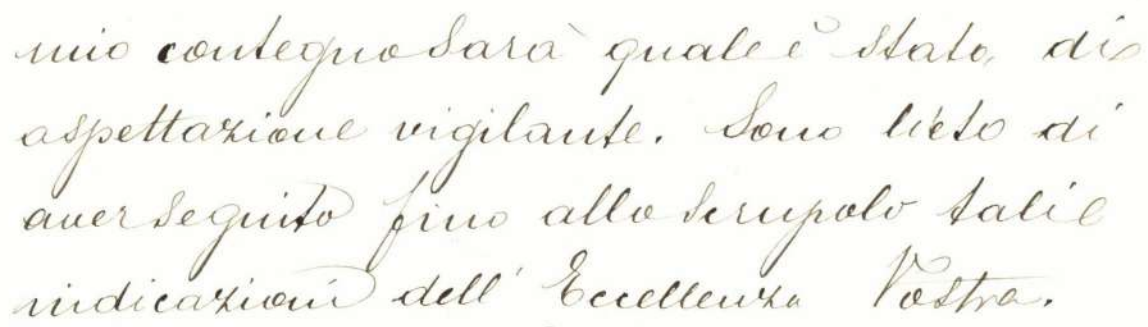 mio contegno sarà quale è stato, di
aspettazione vigilante. Sono lieto di
aver seguito fino allo scrupolo tali
indicazioni dell' Eccellenza Vostra.